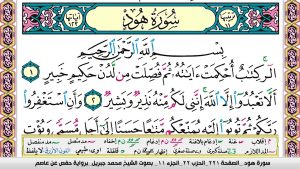 سُورَةُ هُودٍ
بِسْمِ اللَّهِ الرَّحْمَٰنِ الرَّحِيمِ
الٓر كِتَٰبٌ أُحْكِمَتْ ءَايَٰتُهُۥ ثُمَّ فُصِّلَتْ مِن لَّدُنْ حَكِيمٍ خَبِيرٍ ١
أَلَّا تَعْبُدُوٓا۟ إِلَّا ٱللَّهَ إِنَّنِى لَكُم مِّنْهُ نَذِيرٌ وَبَشِيرٌ ٢ وَأَنِ ٱسْتَغْفِرُوا۟
رَبَّكُمْ ثُمَّ تُوبُوٓا۟ إِلَيْهِ يُمَتِّعْكُم مَّتَٰعًا حَسَنًا إِلَىٰٓ أَجَلٍ مُّسَمًّى وَيُؤْتِ
سورة هود . الصفحة 221 . الحزب 22 . الجزء 11 . بصوت الشيخ محمد جبريل . برواية حفص عن عاصم